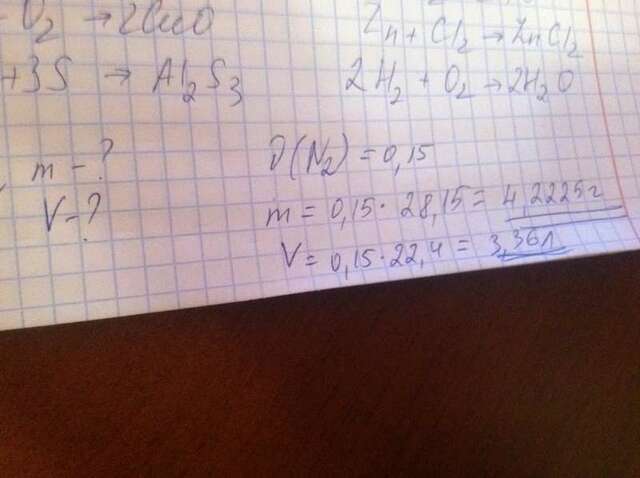 O₂ → 2CuO
Zn + Cl₂ → ZnCl₂
+3S → Al₂S₃
2H₂ + O₂ → 2H₂O
m - ?
V - ?
ν(N₂) = 0,15
m = 0,15 · 28,15 = 4,2225 г
V = 0,15 · 22,4 = 3,36 л